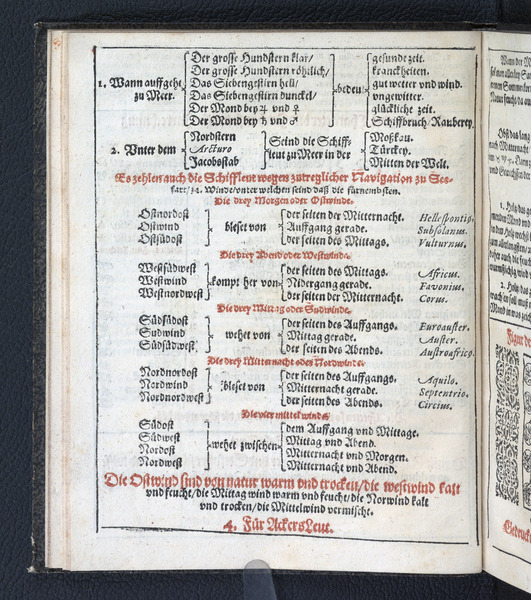 Der grosse Hundstern klar/ gesunde zeit.
Der grosse Hundstern röhtlich/ kranckheiten.
1. Wann auffgeht Das Siebengestirn hell/ bedeu: gut wetter vnd wind.
zu Meer. Das Siebengestirn dunckel/ vngewitter.
Der Mond bey ♃ vnd ♀ glückliche zeit.
Der Mond bey ♄ vnd ♂ Schiffbruch/Rauberey.
Nordstern Moßkau.
2. Vnter dem Arcturo Seind die Schiff- Türckey.
Jacobsstab leut zu Meer in der Mitten der Welt.
Es zehlen auch die Schiffleut wegen zutreglicher Navigation zu See-
fart/ 24. Winde/vnter welchen seind daß die fürnembsten.
Die drey Morgen oder Ostwinde.
Ostnordost der seiten der Mitternacht. Hellespontiꝰ.
Ostwind bleset von Auffgang gerade. Subsolanus.
Ostsüdost der seiten des Mittags. Vulturnus.
Die drey Abend oder Westwinde.
Westsüdwest der seiten des Mittags. Africus.
Westwind kompt her von Nidergang gerade. Favonius.
Westnordwest der seiten der Mitternacht. Corus.
Die drey Mittag oder Sudwinde.
Südsüdost der seiten des Auffgangs. Euroauster.
Sudwind wehet von Mittag gerade. Auster.
Südsüdwest der seiten des Abends. Austroafricꝰ.
Die drey Mitternacht oder Nordwinde.
Nordnordost der seiten des Auffgangs. Aquilo.
Nordwind bleset von Mitternacht gerade. Septentrio.
Nordnordwest der seiten des Abends. Circius.
Die vier mittel winde.
Südost dem Auffgang vnd Mittage.
Südwest wehet zwischen Mittag vnd Abend.
Nordost Mitternacht vnd Morgen.
Nordwest Mitternacht vnd Abend.
Die Ostwind sind von natur warm vnd trocken/die westwind kalt
vnd feucht/die Mittag wind warm vnd feucht/die Norwind kalt
vnd trocken/die Mittelwind vermischt.
4. Für Ackers Leut.